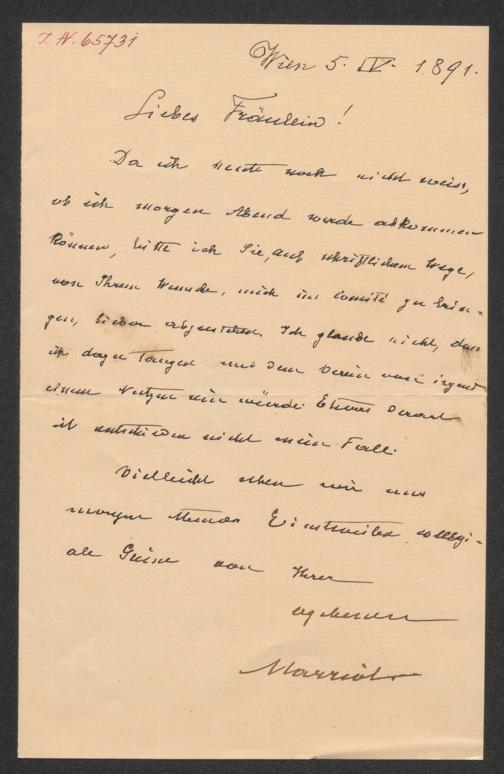 I. N. 65731
Wien 5. IV. 1891.
Liebes Fräulein!
Da ich heute noch nicht weiss,
ob ich morgen Abend werde abkommen
können, bitte ich Sie, auf schriftlichem Wege,
von Ihrem Wunsche, mich ins Comité zu brin-
gen, lieber abzustehen. Ich glaube nicht, dass
ich dazu tauge und dem Verein von irgend
einem Nutzen sein würde. Etwas Derart
ist entschieden nicht mein Fall.
Vielleicht sehen wir uns
morgen Abend. Einstweilen collegi-
ale Grüsse von Ihrer
ergebenen
Marriot